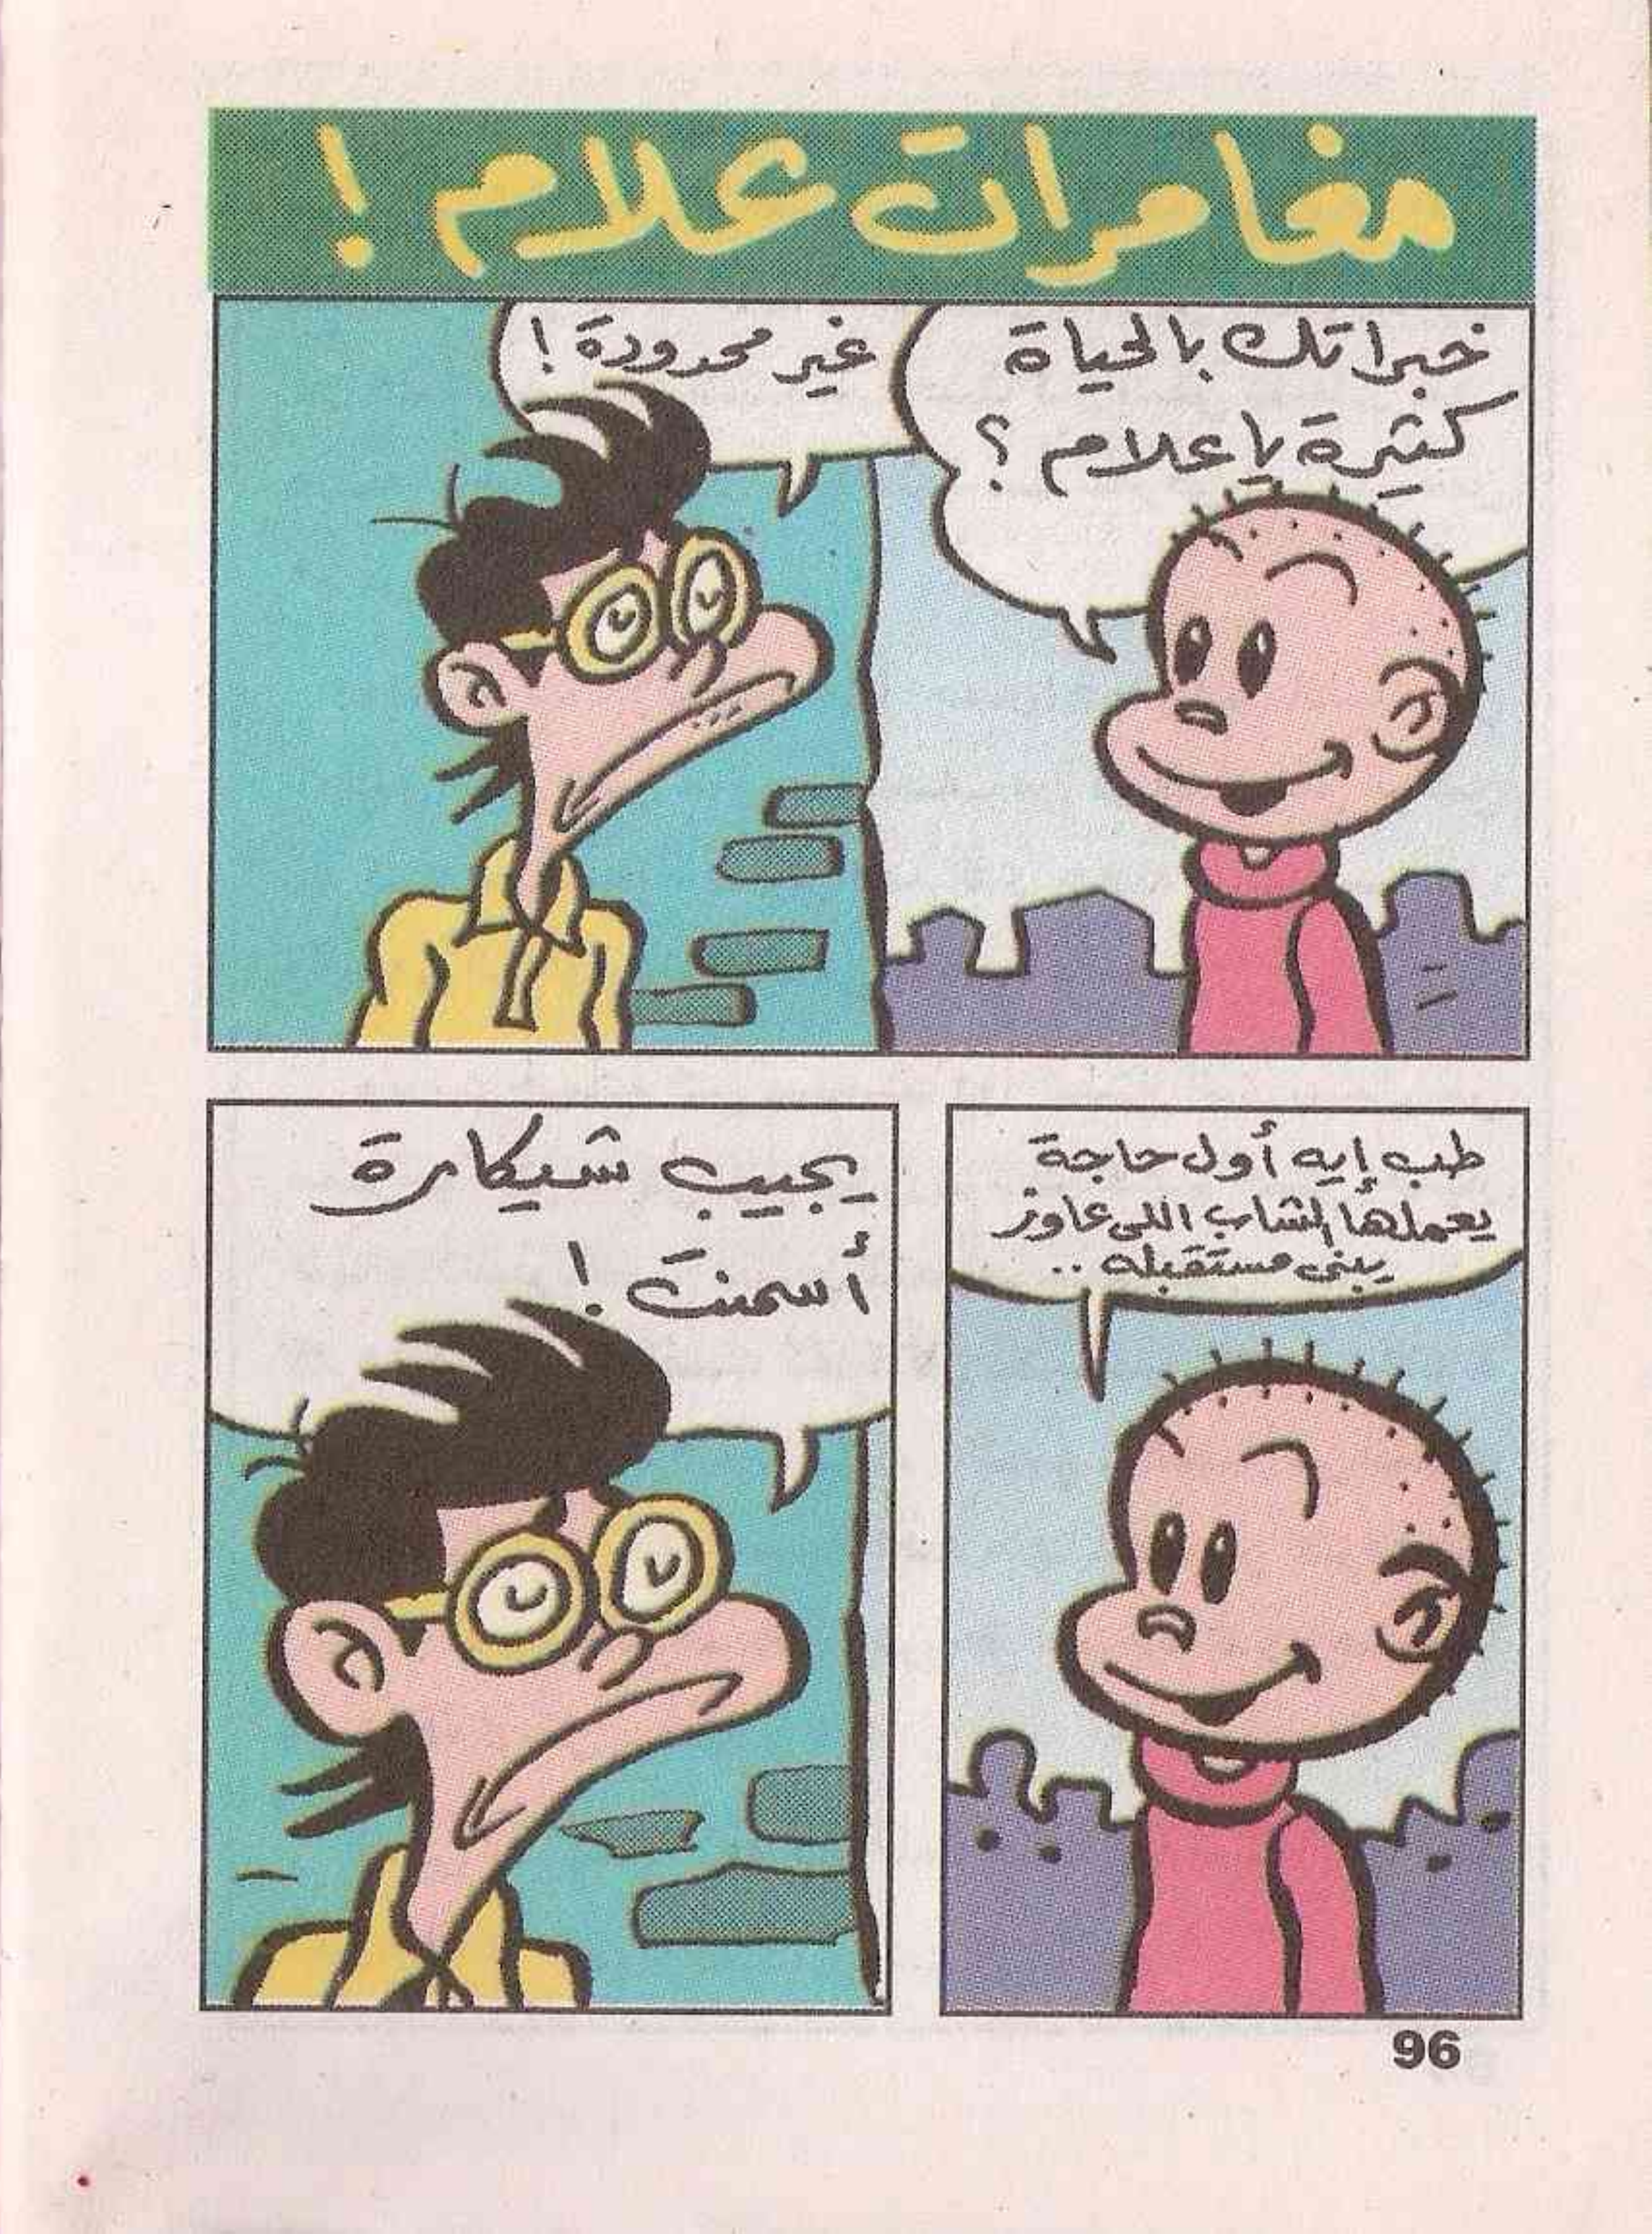 مغامرات علام !
خبراتك بالحياة
كتيرة يا علام ؟
غير محدودة !
طب إيه أول حاجة
يعملها الشاب اللى عاوز
يبنى مستقبله ..
يجيب شيكارة
أسمنت !
96